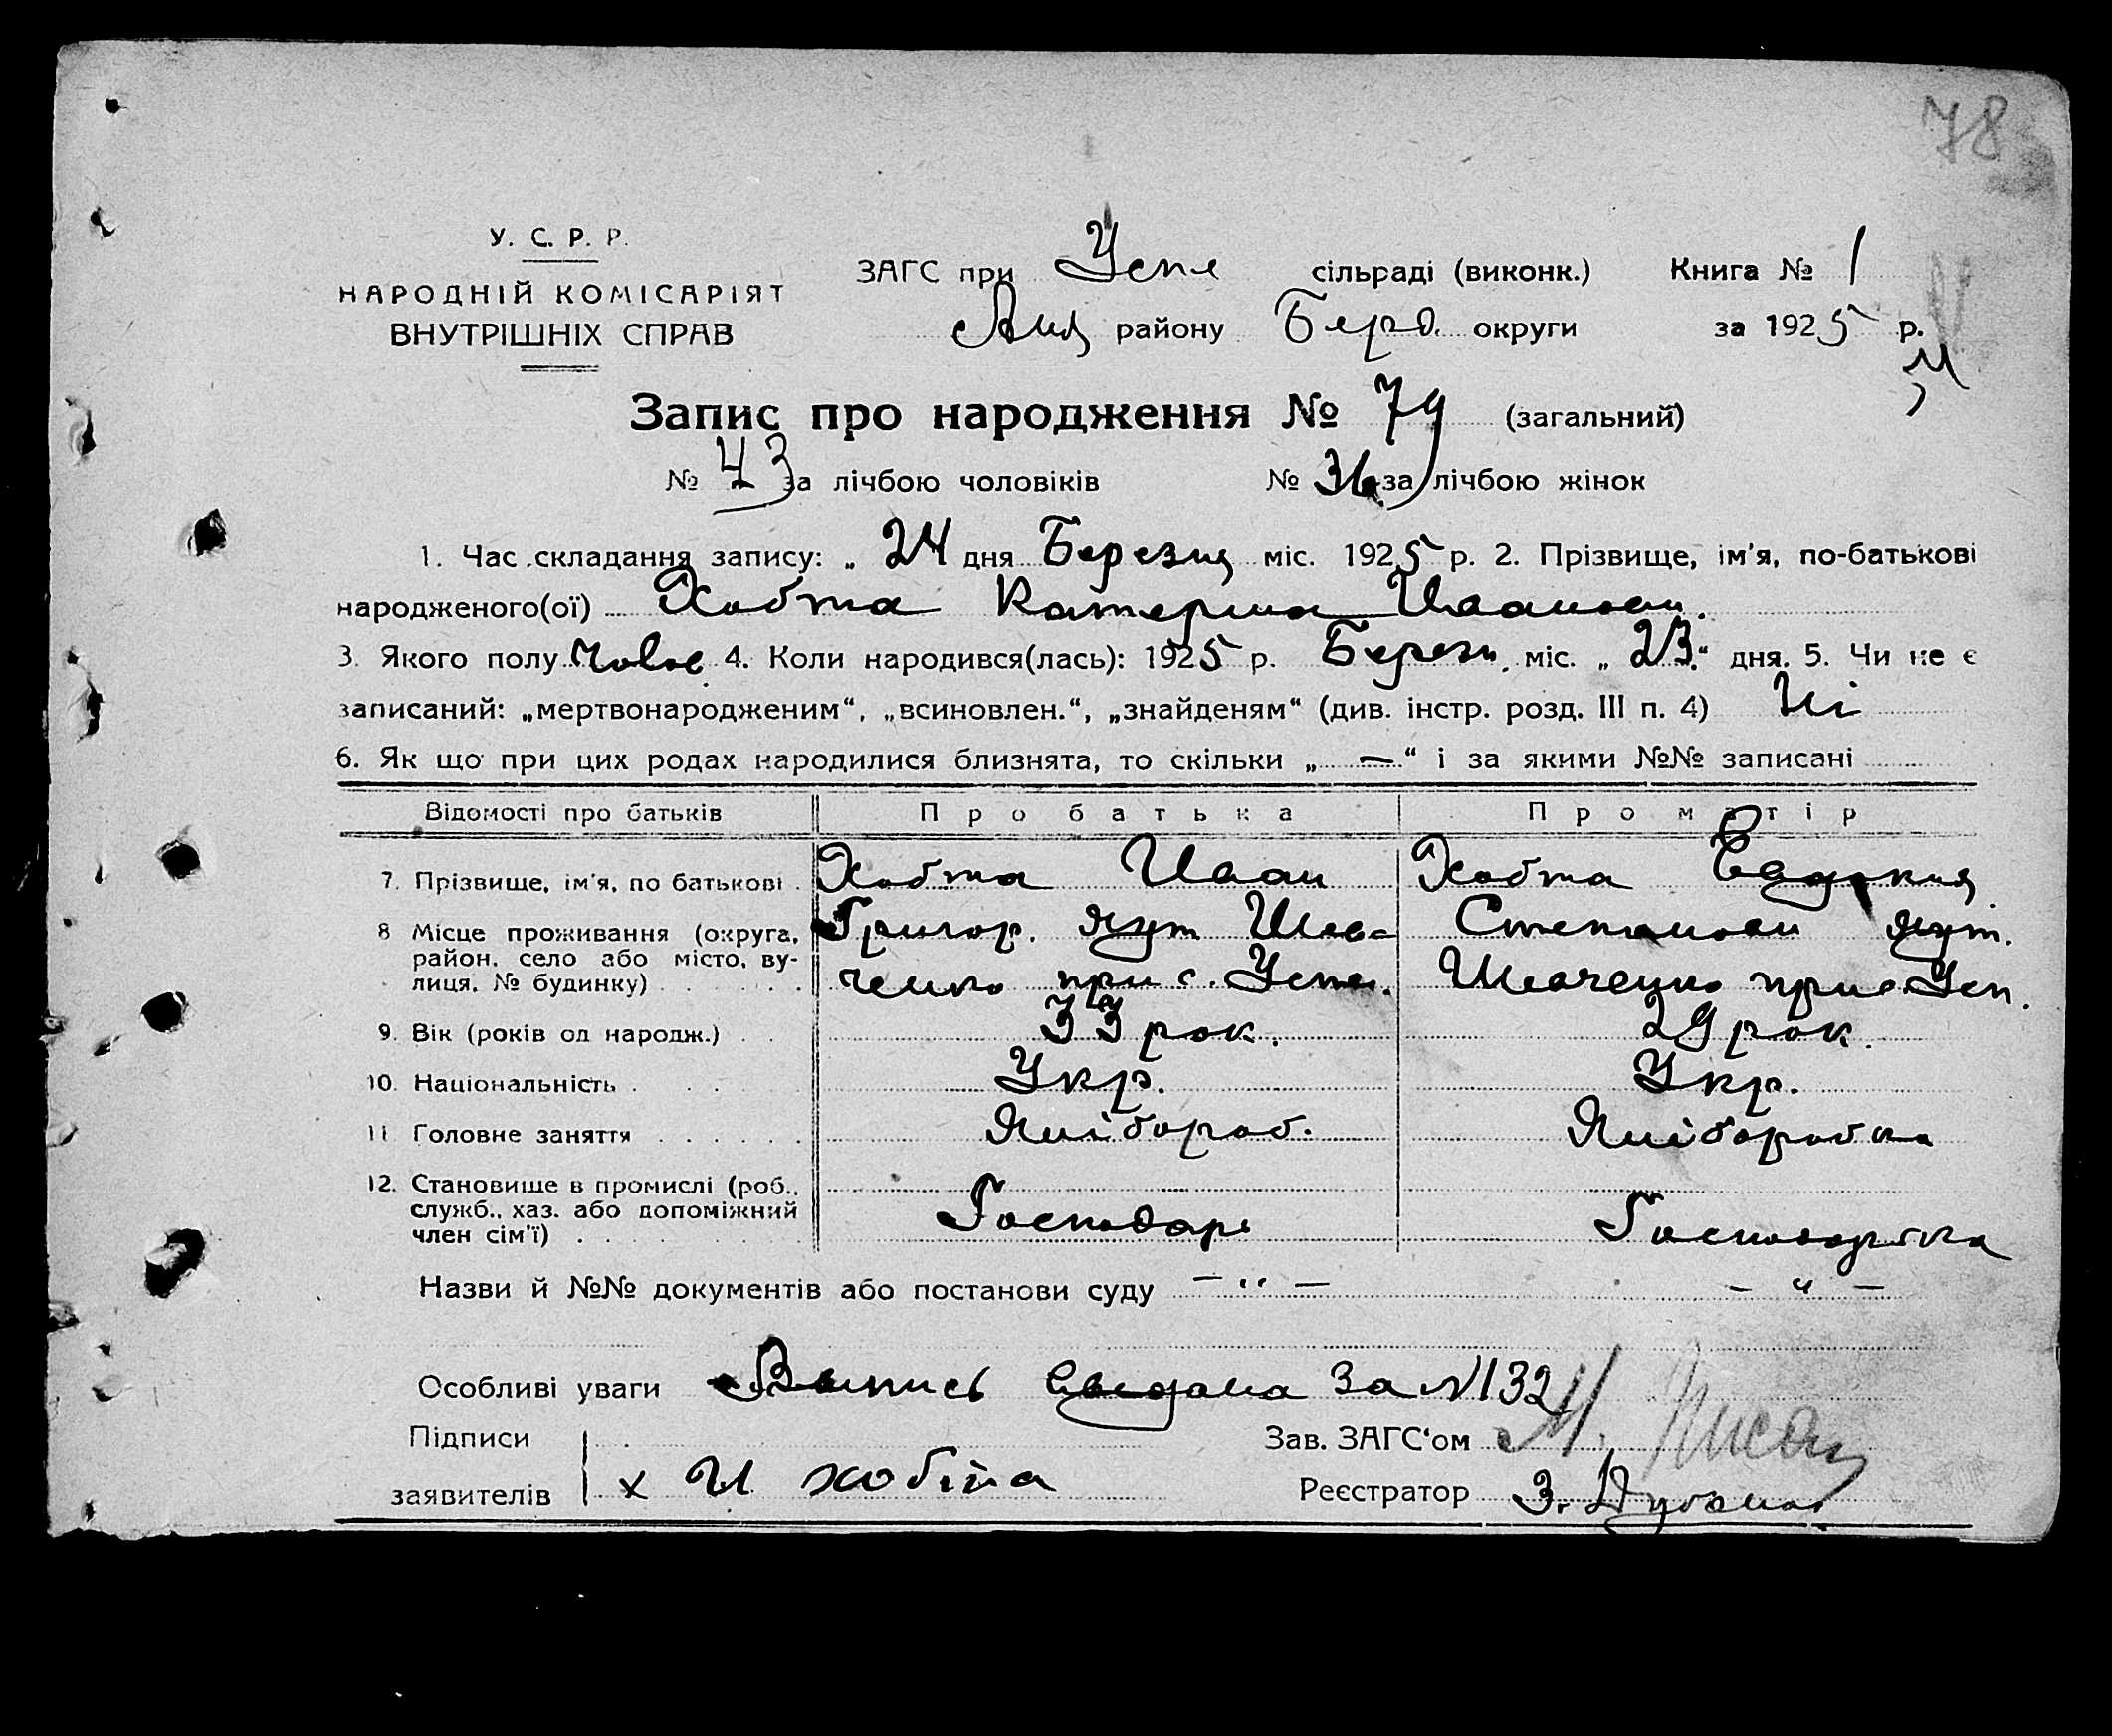 78
У. С. Р. Р.
НАРОДНІЙ КОМІСАРІЯТ
ВНУТРІШНІХ СПРАВ
ЗАГС при Успе сільраді (виконк.) Книга № 1
району Берд. округи за 1925 р.
Запис про народження № 79 (загальний)
№ 43 за лічбою чоловіків № 36 за лічбою жінок
1. Час складання запису: „ 24 дня Березня міс. 1925 р. 2. Прізвище, ім'я, по-батькові
народженого(ої) Хобта Катерина Иванови.
3. Якого полу 4. Коли народився(лась): 1925 р. Березн. міс. „ 23 “ дня. 5. Чи не є
записаний: „мертвонародженим“, „всиновлен.“, „знайденям“ (див. інстр. розд. III п. 4) Ні
6. Як що при цих родах народилися близнята, то скільки „ — “ і за якими №№ записані
Відомості про батьків Про батька Про матір
7. Прізвище, ім'я, по батькові . Хобта Иван Хобта Евдокия
8 Місце проживання (округа, район, село або місто, вулиця, № будинку) Григор. хут Шевченко при с. Успен. Степанови хут. Шевченко при с Усп.
9. Вік (років од народж.) 33 рок. 29 рок.
10. Національність Укр. Укр.
11 Головне заняття Хлібороб. Хліборобка
12. Становище в промислі (роб., служб., хаз. або допоміжний член сім'ї) Господарь Господарька
Назви й №№ документів або постанови суду — „ — — „ —
Особливі уваги Выпись выдана за №132
Підписи Зав. ЗАГС‘ом
заявителів х И хобта Реєстратор З.